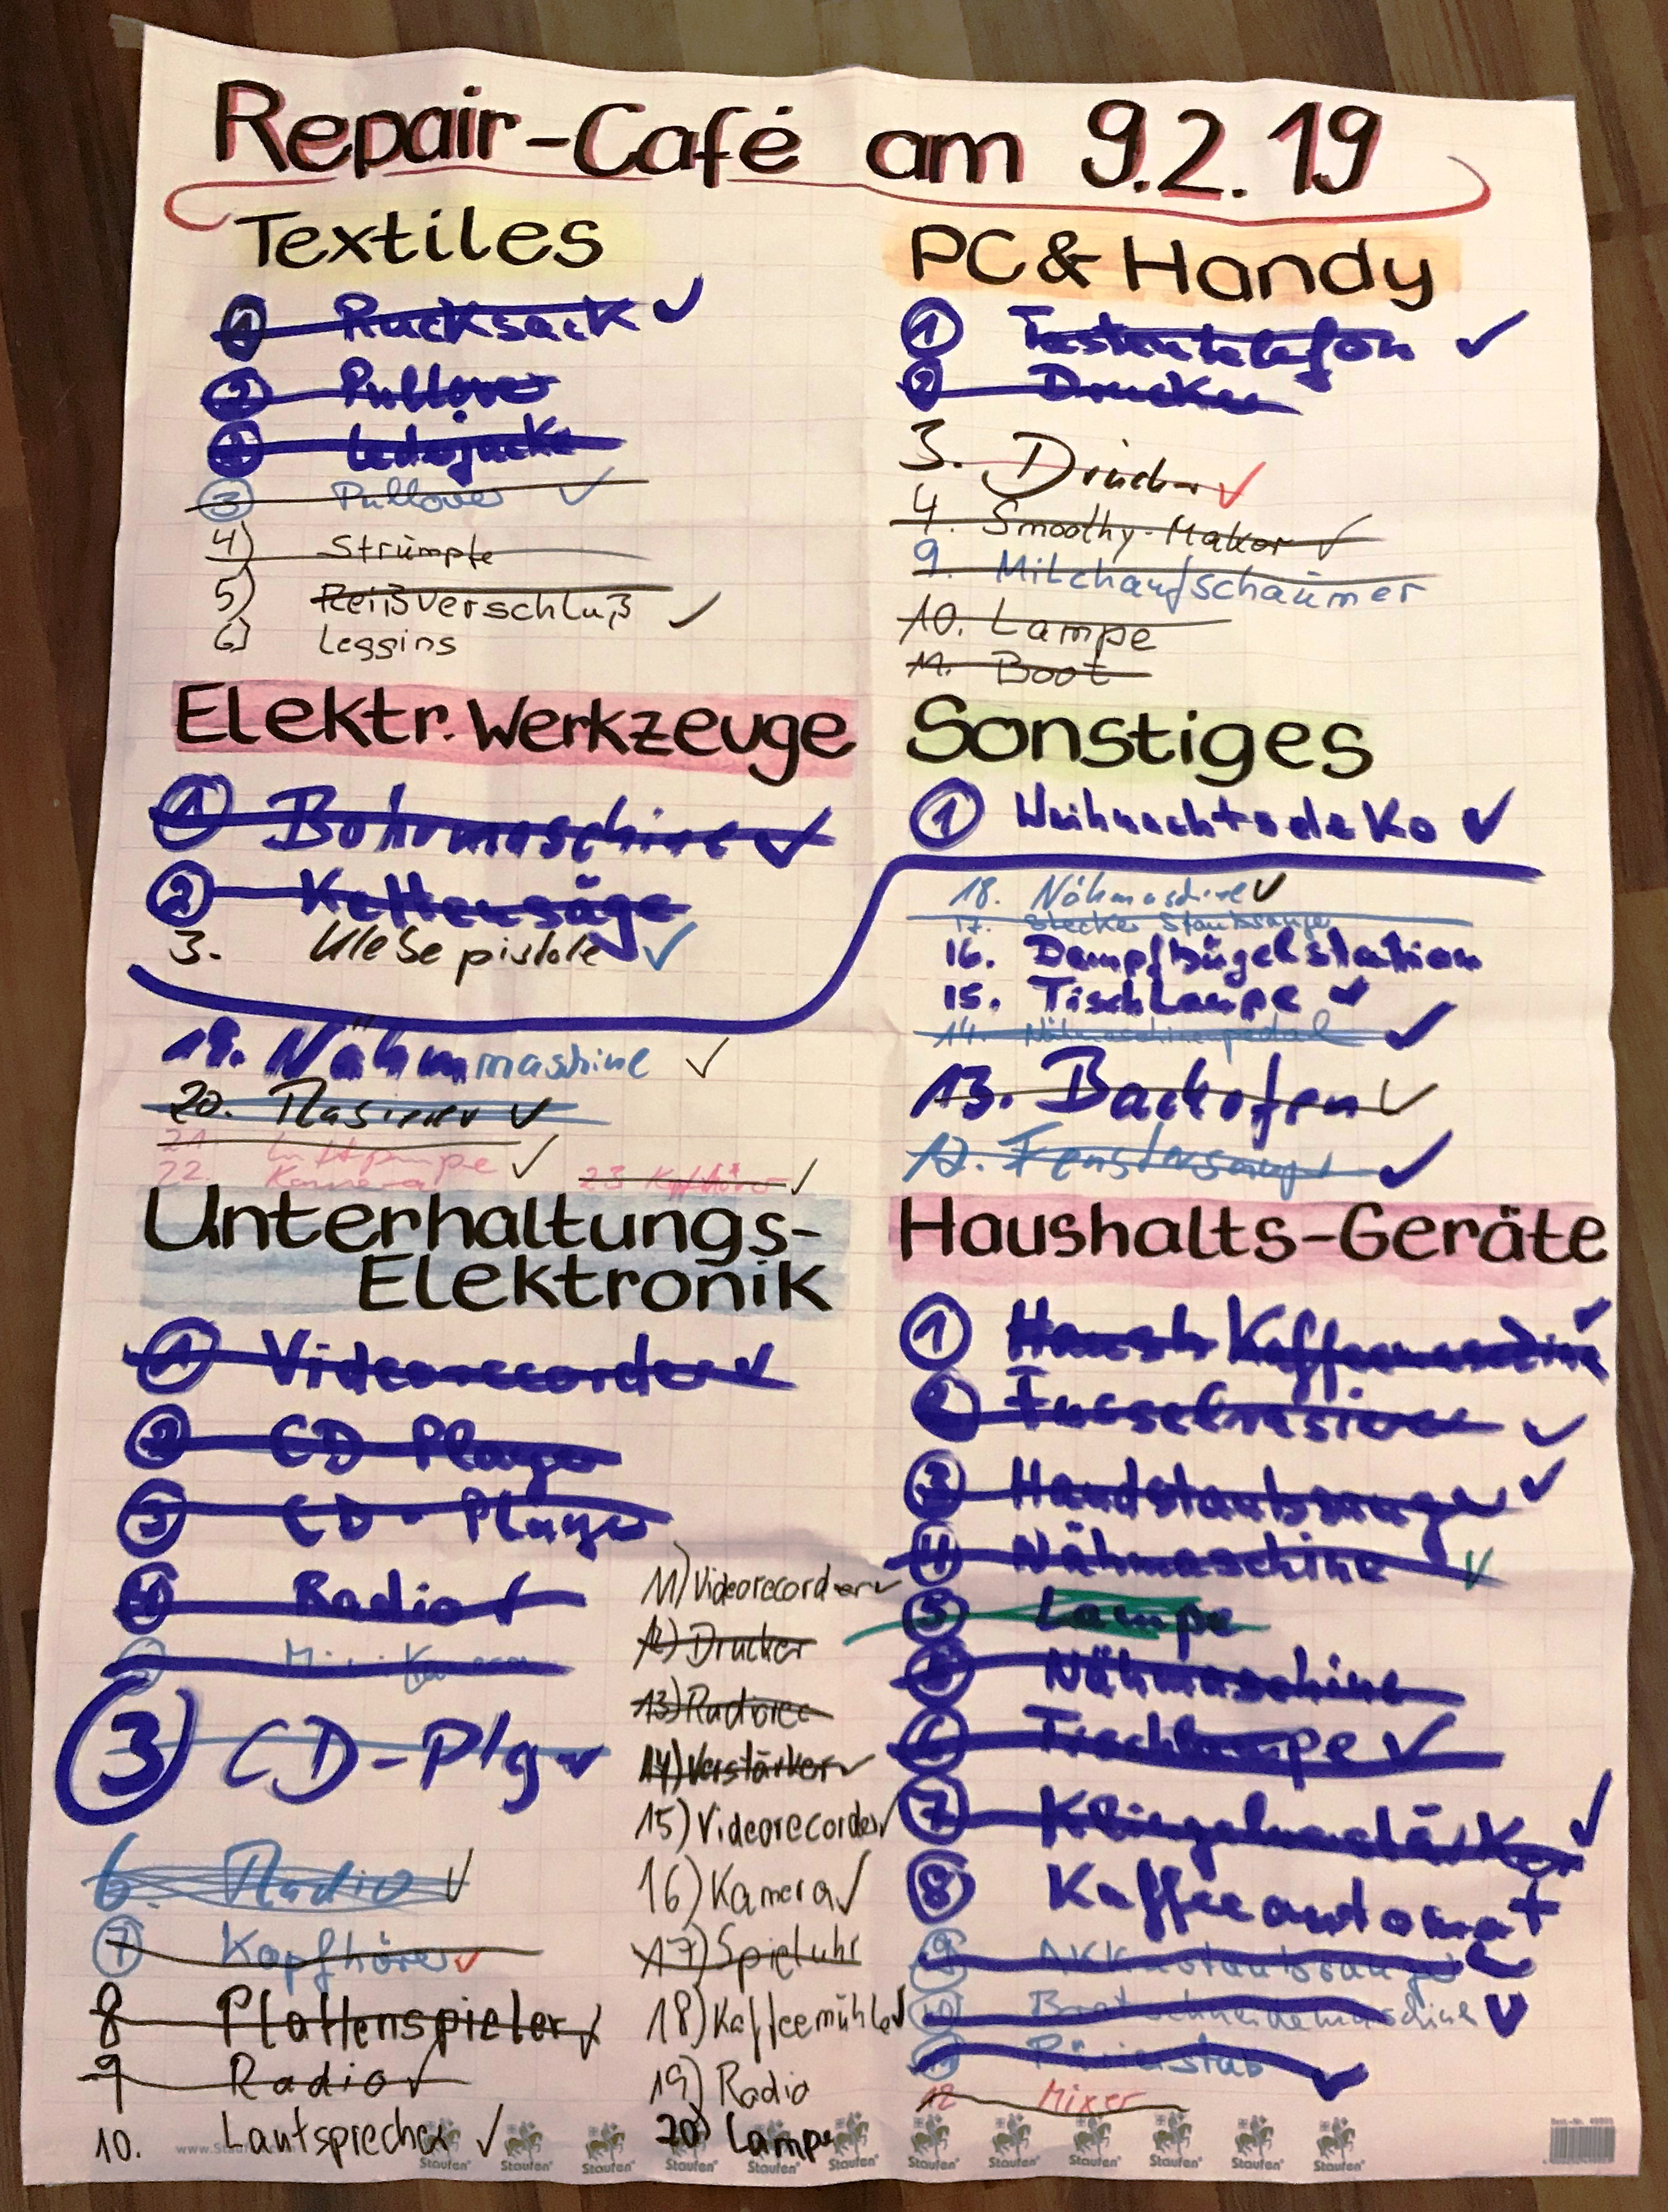 Repair-Café am 9.2.19
Textiles
1 Rucksack ✓
2 Pullover
Lederjacke
3 Pullover ✓
4) Strümpfe
5) Reißverschluß ✓
6) Leggins
PC & Handy
1 Tastentelefon ✓
2 Drucker
3. Drucker ✓
4. Smoothy-Maker ✓
9. Milchaufschäumer
10. Lampe
11. Boot
Elektr. Werkzeuge
1 Bohrmaschine ✓
2 Kettensäge
3. Klebepistole ✓
19. Nähmmaschine ✓
20. Rasierer ✓
21. Luftpumpe ✓
22. Kamera 23 Kopfhörer ✓
Sonstiges
1 Weihnachtsdeko ✓
18. Nähmaschine ✓
17. Stecker Staubsauger
16. Dampfbügelstation
15. Tischlampe ✓
14. Nähmaschinepedal ✓
13. Backofen ✓
12. ✓
Unterhaltungs-
Elektronik
1 Videorecorder ✓
2 CD Player
3 CD-Player
4 Radio ✓
Mini Kamera
3 CD-Play ✓
6. Radio ✓
7 Kopfhörer ✓
8 Plattenspieler ✓
9 Radio ✓
10. Lautsprecher ✓
11) Videorecorder ✓
12) Drucker
13) Radiorec
14) Verstärker ✓
15) Videorecorder ✓
16) Kamera ✓
17) Spieluhr
18) Kaffeemühle ✓
19) Radio
20) Lampe
Haushalts-Geräte
1 Haush Kaffeemaschine ✓
2 Fusselrasierer ✓
3 Handstaubsauger ✓
4 Nähmaschine ✓
5 Lampe
Nähmaschine
6 Tischlampe ✓
7 Klingelverstärker ✓
8 Kaffeeautomat
9 Akkustaubsauger
10 Brotschneidemaschine ✓
11 Pürierstab ✓
12 Mixer
Staufen Staufen Staufen Staufen Staufen Staufen Staufen Staufen Staufen Staufen Staufen Staufen